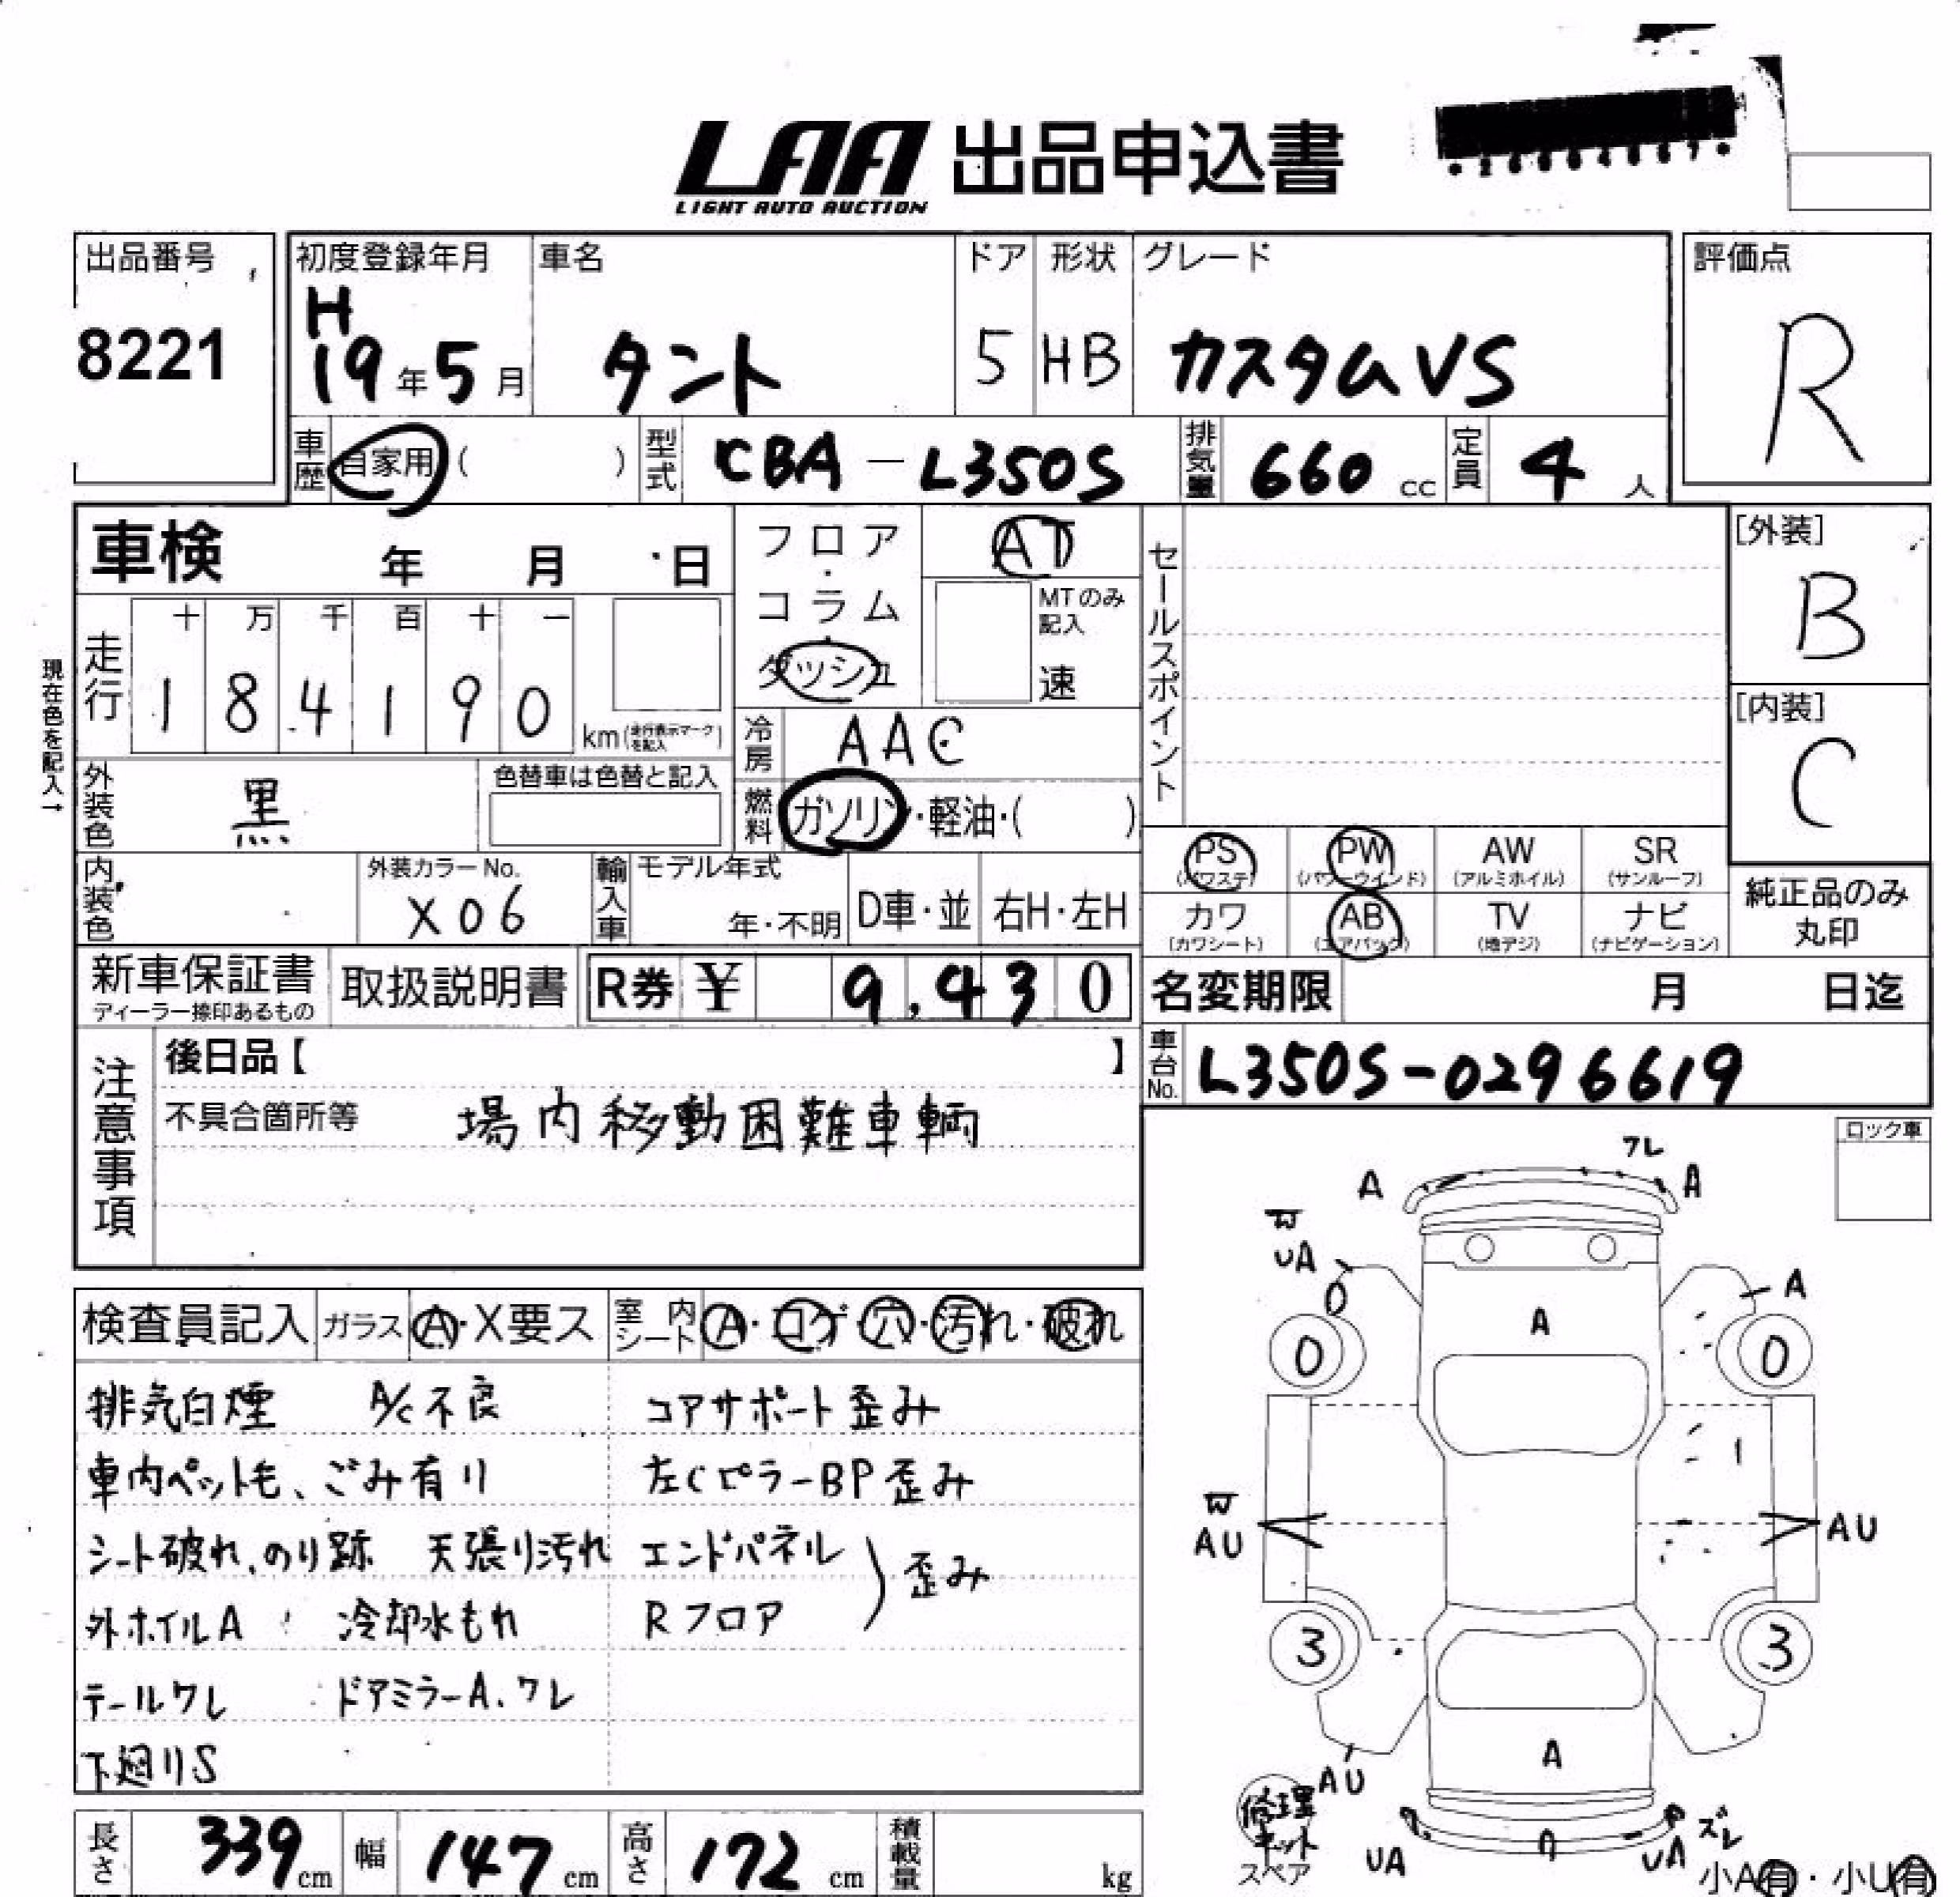 LAA 出品申込書
LIGHT AUTO AUCTION
出品番号
8221
初度登録年月
H
19年5月
車名
タント
ドア
5
形状
HB
グレード
カスタムVS
評価点
R
車歴
自家用 ( )
型式
CBA-L350S
排気量
660 cc
定員
4 人
車検 年 月 日
フロア・コラム・ダッシュ
AT
MTのみ記入
速
セールスポイント
[外装]
B
[内装]
C
現在色を記入→
走行
十 万 千 百 十 一
1 8 4 1 9 0
km(走行表示マークを記入)
冷房
AAC
外装色
黒
色替車は色替と記入
燃料
ガソリン・軽油・( )
内装色
外装カラーNo.
X06
輸入車
モデル年式
年・不明
D車・並
右H・左H
PS
(パワステ)
PW
(パワーウインド)
AW
(アルミホイル)
SR
(サンルーフ)
カワ
(カワシート)
AB
(エアバック)
TV
(地デジ)
ナビ
(ナビゲーション)
純正品のみ
丸印
新車保証書
ディーラー捺印あるもの
取扱説明書
R券 ¥ 9,430
名変期限 月 日迄
車台No.
L350S-0296619
注意事項
後日品【 】
不具合箇所等 場内移動困難車輌
ロック車
検査員記入
ガラス A・X要ス
室内シート A・コゲ・穴・汚れ・破れ
排気白煙 A/C不良 コアサポート歪み
車内ペット毛、ごみ有り 左CピラーBP歪み
シート破れ、のり跡 天張り汚れ エンドパネル
歪み
外ホイルA 冷却水もれ Rフロア
テールワレ ドアミラーA、ワレ
下廻りS
長さ 339 cm
幅 147 cm
高さ 172 cm
積載量 kg
ワレ
A
A
W
UA
A
A
0
0
W
AU
AU
3
3
A
AU
修理キット
スペア
UA
UA
ズレ
小A有・小U有